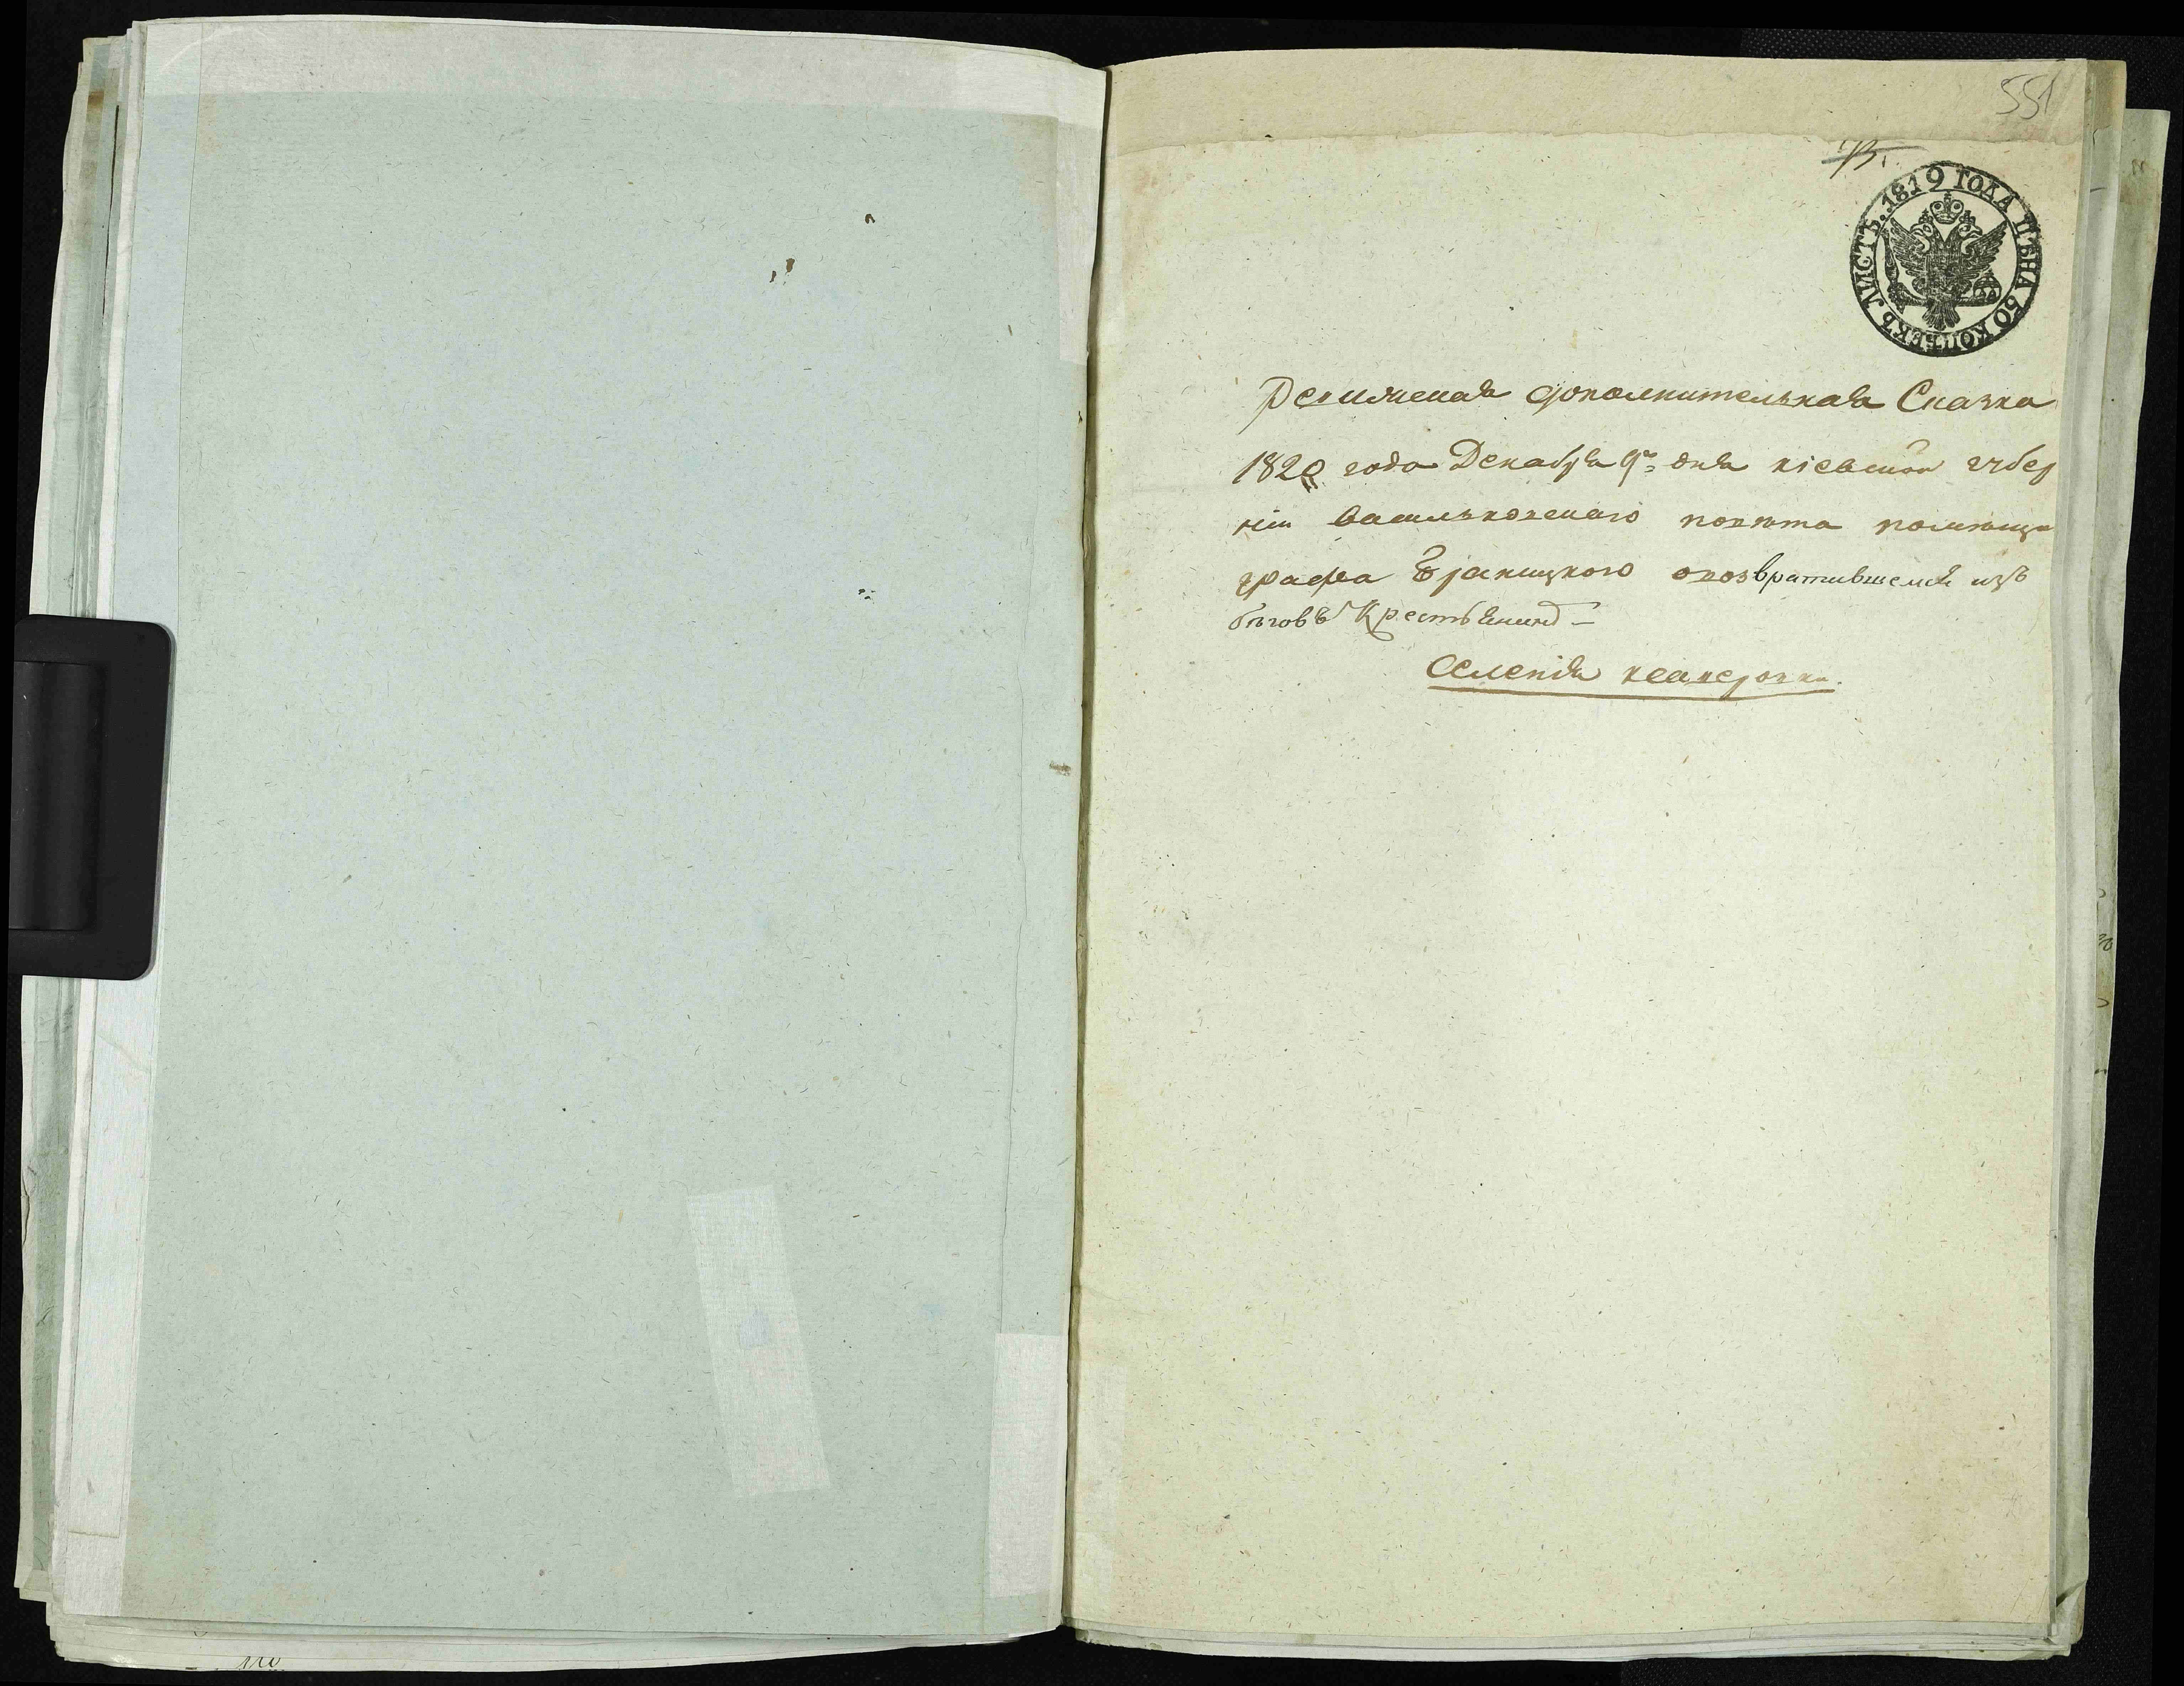 551
ЛИСТЪ. 1819 ГОДА ЦѢНА 50 КОПѢЕКЪ
Ревижская дополнительная Сказка
1820 года Декабря 9го дня кіевской губер
ніи васильковскаго повѣта помѣщи
графа Браницкого овозвратившемся изъ
бѣговъ Крестьянинѣ
Селенія